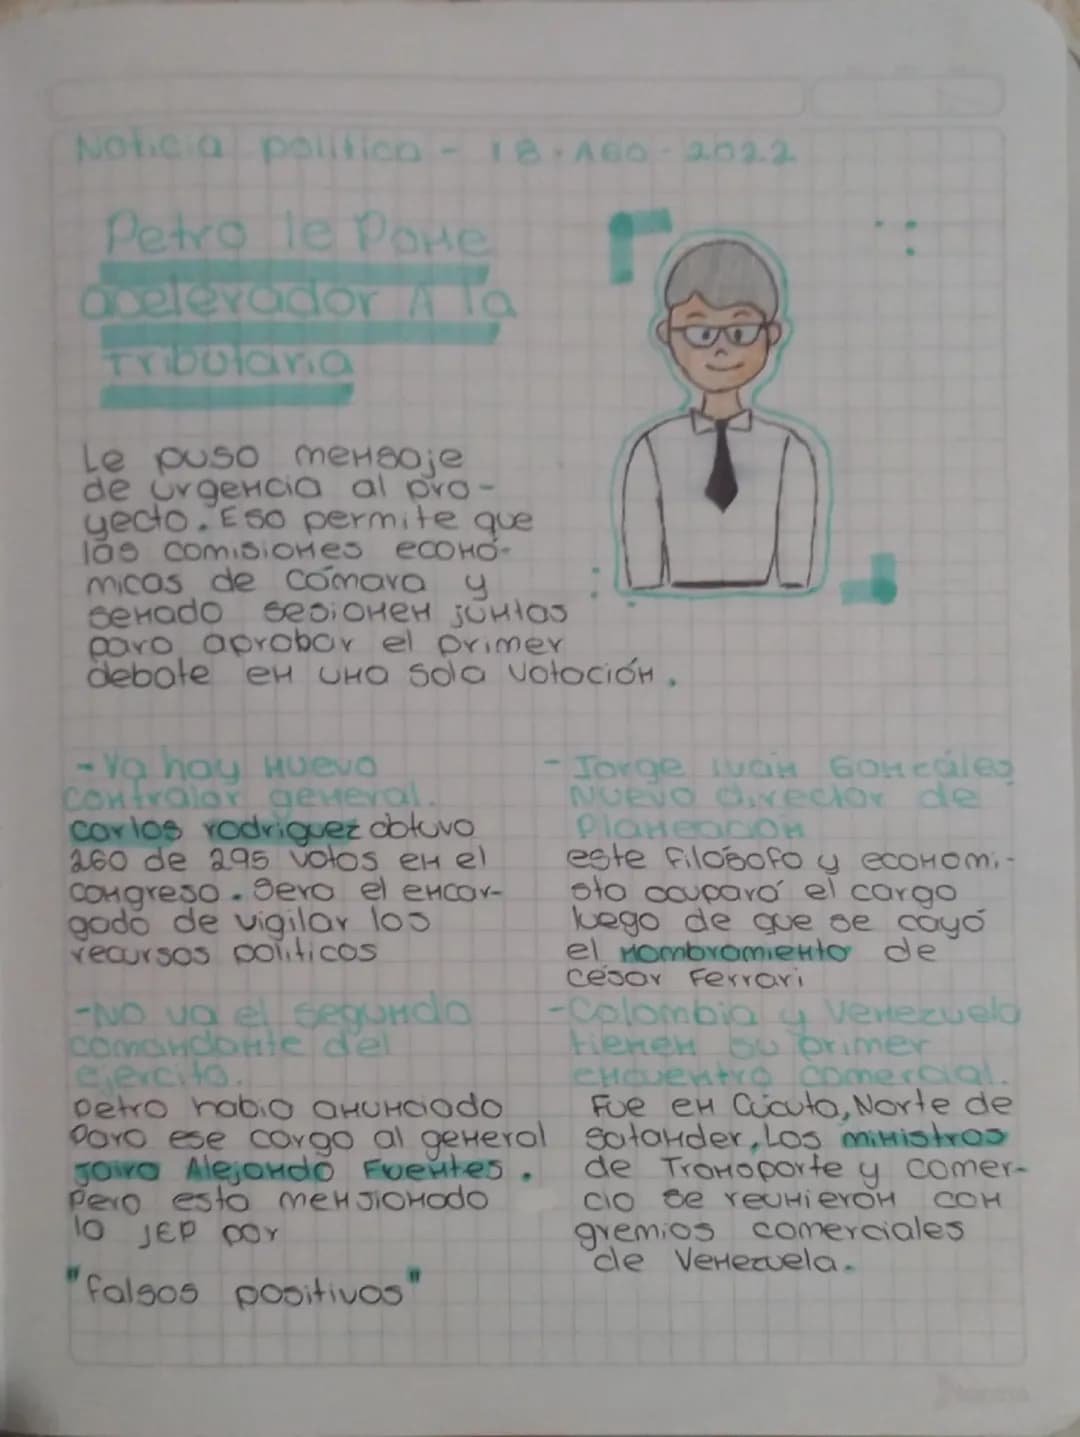 Noticia politica - 18 · AGO - 2022
Petro le Pone
acelerador A la
Tributaria
Le puso mensaje
de urgencia al pro-
yecto. Eso permite que
las comisiones econó-
micas de cámara y
senado sesionen juntas
para aprobar el primer
debate en una sola votación.
- Ya hay nuevo
contralor general.
carlos rodriguez obtuvo
260 de 295 votos en el
congreso. Sera el encar-
gado de vigilar los
recursos politicos
- Jorge iván Gonzáles
Nuevo director de
Planeación
este filósofo y economi-
sta ocupará el cargo
luego de que se cayó
el nombramiento de
césar Ferrari
- No va el segundo
comandante del
ejercito.
petro habia anunciado
para ese cargo al general
jairo Alejando Fuentes.
Pero esta mensionado
lo JEP por
"falsos positivos"
- Colombia y Venezuela
tienen su primer
encuentro comercial.
Fue en Cúcuta, Norte de
Satander, Los ministros
de Transporte y comer-
cio se reunieron con
gremios comerciales
de Venezuela.